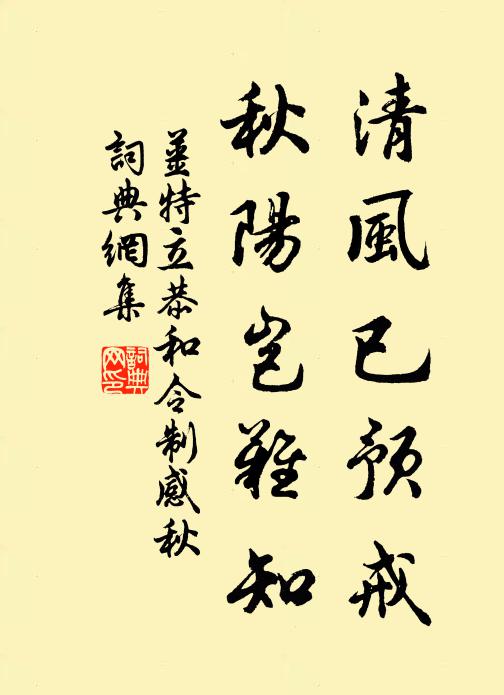 清風已預戒
秋陽豈難知
姜特立恭和令制感秋
詞典網集
詞典网印